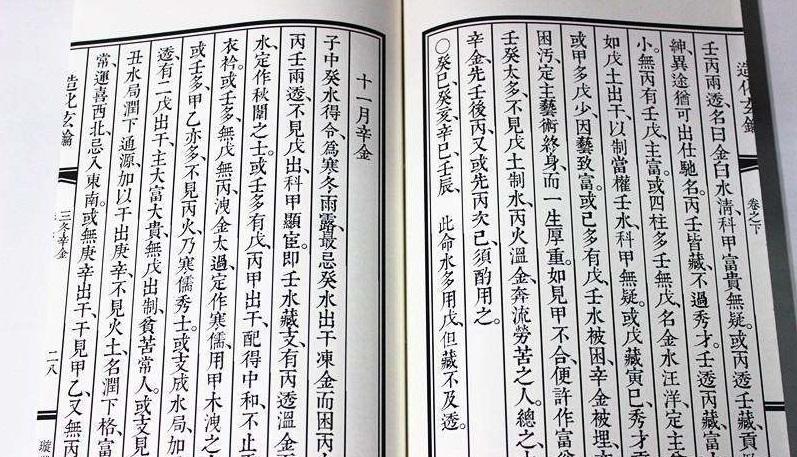 造化玄鑰
卷之下
壬丙兩透、名曰金白水清、科甲富貴無疑。或丙透壬藏、貢
紳、異途猶可出仕馳名。丙壬皆藏、不過秀才。壬透丙藏、富
小。無丙有壬戊、主富。或四柱多壬無戊、名金水汪洋、定主
如戊土出干、以制當權壬水、科甲無疑。或戊藏寅巳、秀才
或甲多戊少、因藝致富。或己多有戊、壬水被困、辛金被埋、
困污、定主藝術終身、而一生厚重。如見甲不合、便許作富
壬癸太多、不見戊土制水、丙火溫金、奔流勞苦之人。總之、
辛金先壬後丙、又或先丙次己、須酌用之。
〇癸巳、癸亥、辛巳、壬辰、 此命水多用戊、但藏不及透。
十一月辛金
子中癸水得令、為寒冬雨露、最忌癸水出干凍金、而困丙
丙壬兩透、不見戊出、科甲顯宦。即壬水藏支、有丙透溫金
水、定作秋闈之士。或壬多有戊、丙甲出干、配得中和、不止
衣衿。或壬多、無戊無丙、洩金太過、定作寒儒、用甲木洩之
或壬多、甲乙亦多、不見丙火、乃寒儒秀士。或支成水局、加
透、有二戊出干、主大富大貴、無戊出制、貧苦常人。或支見
丑水局、潤下通源、加以干出庚辛、不見火土、名潤下格、富
常、運喜西北、忌入東南。或無庚辛出干、干見甲乙、又無丙
造化玄鑰
三冬辛金
二八
璇